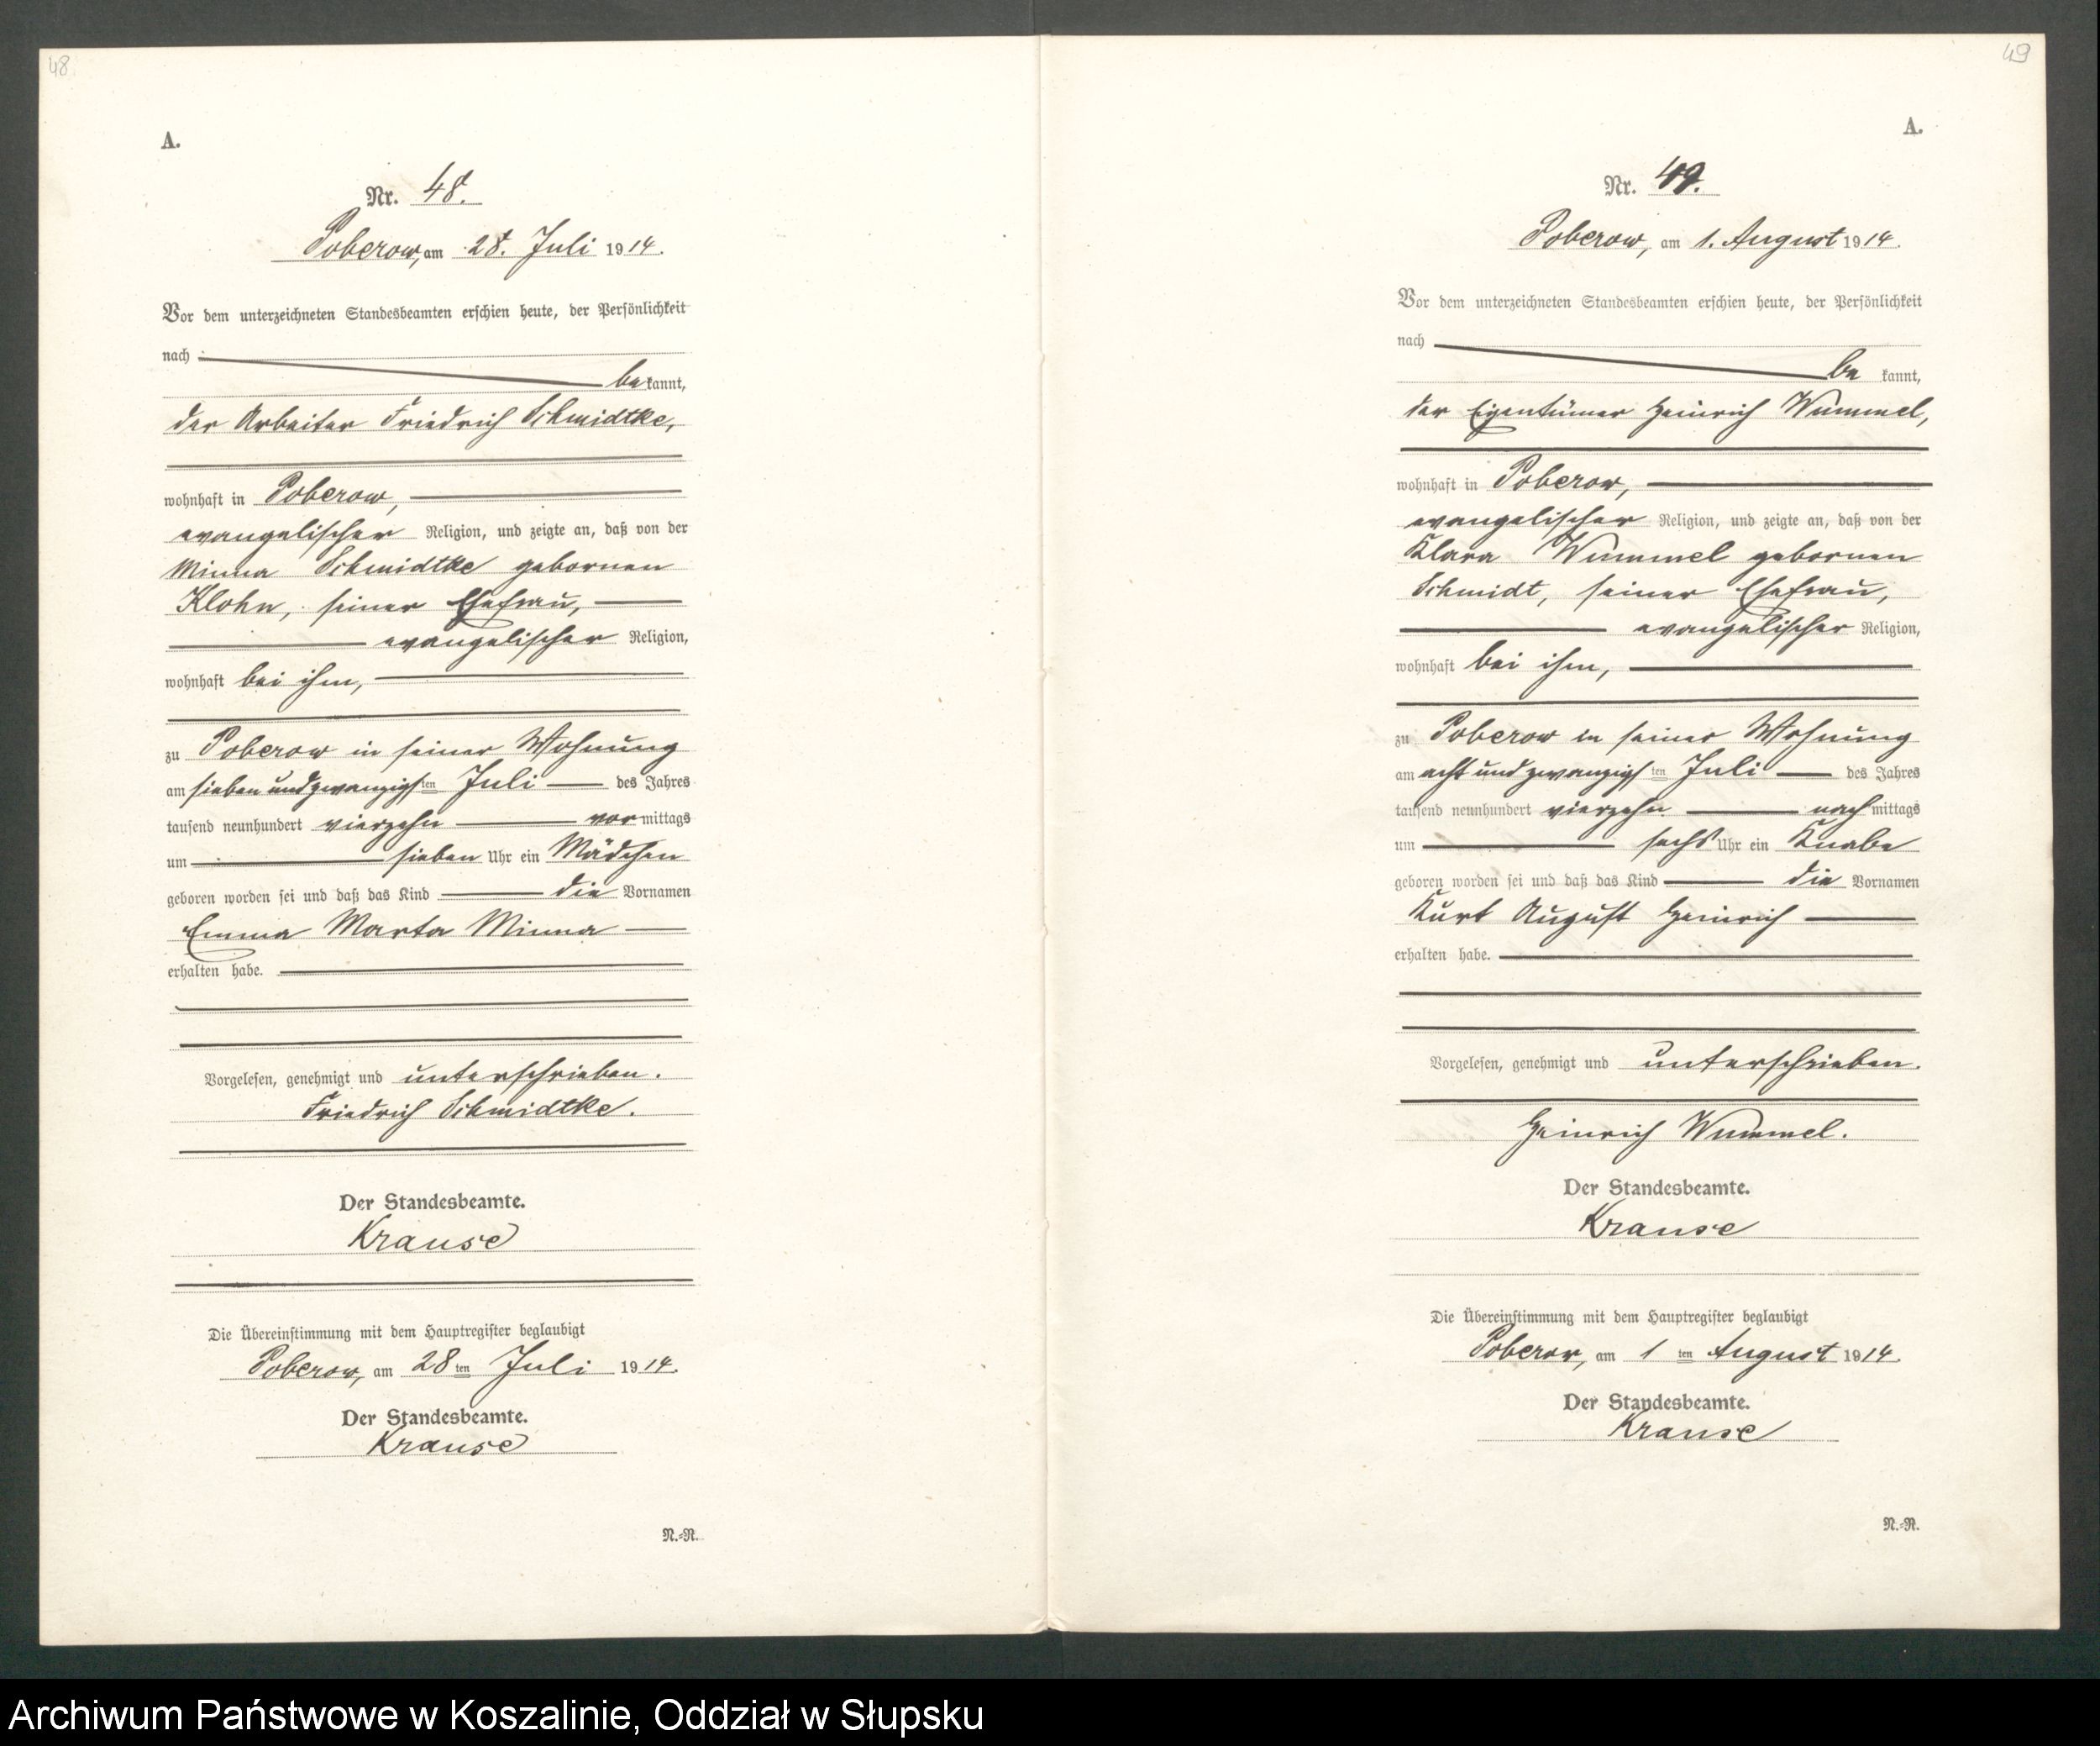 48
A.
Nr. 48.
Poberow, am 28. Juli 1914.
Vor dem unterzeichneten Standesbeamten erschien heute, der Persönlichkeit
nach
be kannt,
der Arbeiter Friedrich Schmidtke,
wohnhaft in Poberow,
evangelischer Religion, und zeigte an, daß von der
Minna Schmidtke gebornen
Klohn, seiner Ehefrau,
evangelischer Religion,
wohnhaft bei ihm,
zu Poberow in seiner Wohnung
am sieben und zwanzigsten Juli des Jahres
tausend neunhundert vierzehn vormittags
um sieben Uhr ein Mädchen
geboren worden sei und daß das Kind die Vornamen
Emma Marta Minna
erhalten habe.
Vorgelesen, genehmigt und unterschrieben.
Friedrich Schmidtke.
Der Standesbeamte.
Krause
Die Übereinstimmung mit dem Hauptregister beglaubigt
Poberow, am 28ten Juli 1914.
Der Standesbeamte.
Krause
N.=R.
49
A.
Nr. 49.
Poberow, am 1. August 1914.
Vor dem unterzeichneten Standesbeamten erschien heute, der Persönlichkeit
nach
be kannt,
der Eigentümer Heinrich Wummel,
wohnhaft in Poberow,
evangelischer Religion, und zeigte an, daß von der
Klara Wummel gebornen
Schmidt, seiner Ehefrau,
evangelischer Religion,
wohnhaft bei ihm,
zu Poberow in seiner Wohnung
am acht und zwanzigsten Juli des Jahres
tausend neunhundert vierzehn nachmittags
um sechs Uhr ein Knabe
geboren worden sei und daß das Kind die Vornamen
Kurt August Heinrich
erhalten habe.
Vorgelesen, genehmigt und unterschrieben.
Heinrich Wummel.
Der Standesbeamte.
Krause
Die Übereinstimmung mit dem Hauptregister beglaubigt
Poberow, am 1 ten August 1914.
Der Standesbeamte.
Krause
N.=R.
Archiwum Państwowe w Koszalinie, Oddział w Słupsku